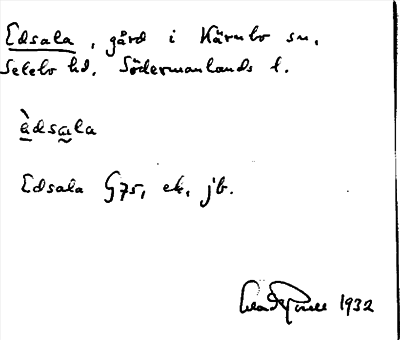 Edsala, gård i Kärnbo sn,
Selebo hd, Södermanlands l.
àdsala
Edsala G75, ek, jb.
1932